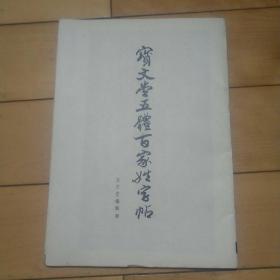 寳文堂五體百家姓字帖